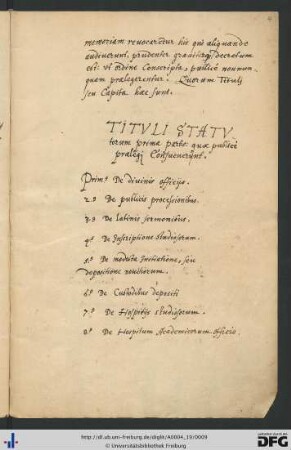 memoriam reuocarentur his qui aliquando
audiuerunt, prudenter grauiterq; decretum
est: vt ordine Conscripta, publice nonnun-
quam praelegerentur. Quorum Tituli
seu Capita haec sunt.
TITVLI STATV
torum prima parte quae publice
praelegi Consueuerunt.
Primo De diuinis officijs.
2.o De publicis processionibus.
3.o De latinis sermonibus.
4.o De Inscriptione studiosorum.
5.o De modesta Initiatione, seu
depositione nouitiorum.
6.o De Custodibus depositi
7.o De Hospitijs studiosorum.
8.o De Hospitum Academicorum officio.
http://dl.ub.uni-freiburg.de/diglit/A0004_19/0009
© Universitätsbibliothek Freiburg
gefördert durch
DFG